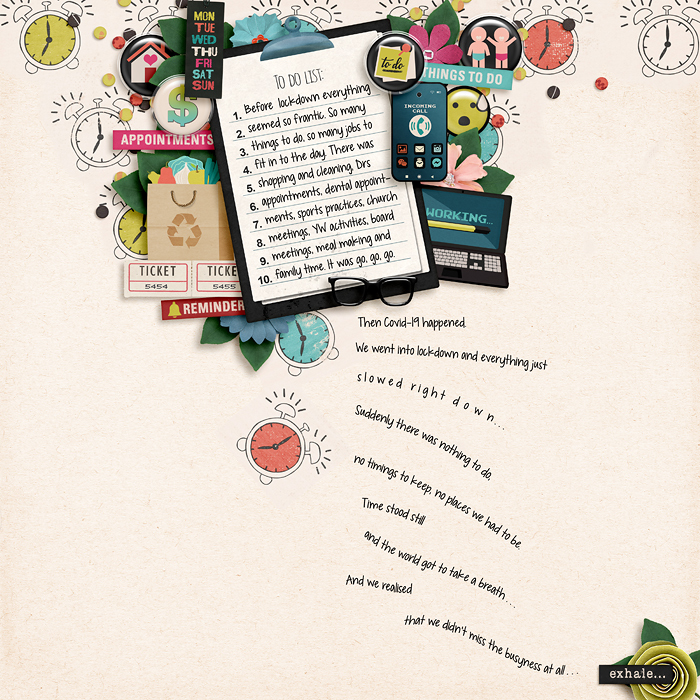 MON
TUE
WED
THU
FRI
SAT
SUN
to do
THINGS TO DO
INCOMING
CALL
APPOINTMENTS
WORKING...
TICKET
5454
TICKET
5455
REMINDER
TO DO LIST:
1. Before lockdown everything
2. seemed so frantic. So many
3. things to do, so many jobs to
4. fit in to the day. There was
5. shopping and cleaning, Drs
6. appointments, dental appoint-
7. ments, sports practices, church
8. meetings, YW activities, board
9. meetings, meal making and
10. family time. It was go, go, go.
Then Covid-19 happened.
We went into lockdown and everything just
slowed right down...
Suddenly there was nothing to do,
no timings to keep, no places we had to be.
Time stood still
and the world got to take a breath...
And we realised
that we didn't miss the busyness at all...
exhale...